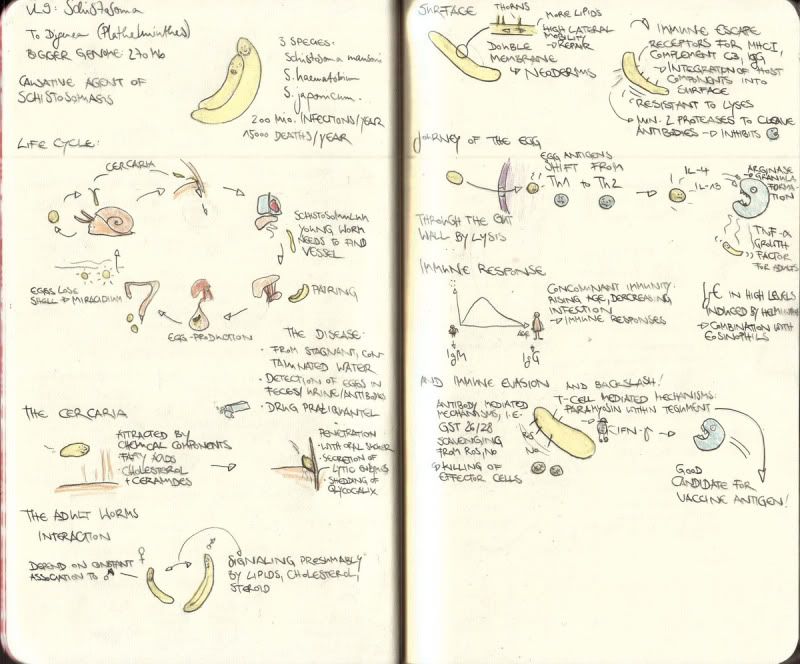 Schistosoma
To Digenea (Plathelminthes)
BIGGER GENOME: 270 Mb
CAUSATIVE AGENT OF
SCHISTOSOMIASIS
3 SPECIES:
Schistosoma mansoni
S. haematobium
S. japonicum
200 Mio. INFECTIONS/YEAR
15000 DEATHS/YEAR
LIFE CYCLE:
CERCARIA
SCHISTOSOMULUM
YOUNG WORM
NEEDS TO FIND
VESSEL
PAIRING
EGG-PRODUCTION
EGGS LOSE
SHELL → MIRACIDIUM
THE DISEASE:
· FROM STAGNANT, CON-
TAMINATED WATER
· DETECTION OF EGGS IN
FECES/URINE/ANTIBODIES
· DRUG PRAZIQUANTEL
THE CERCARIA
ATTRACTED BY
CHEMICAL COMPONENTS
FATTY ACIDS
· CHOLESTEROL
+ CERAMIDES
PENETRATION
· WITH ORAL SUCKER
· SECRETION OF
LYTIC ENZYMES
· SHEDDING OF
GLYCOCALIX
THE ADULT WORMS
INTERACTION
DEPEND ON CONSTANT
ASSOCIATION TO ♂
♀
♂
SIGNALING PRESUMABLY
BY LIPIDS, CHOLESTEROL,
STEROID
SURFACE
THORNS
MORE LIPIDS
HIGH LATERAL
MOBILITY
→ REPAIR
DOUBLE
MEMBRANE
↳ NEODERMIS
IMMUNE ESCAPE
RECEPTORS FOR MHCI,
COMPLEMENT C3, IgG
→ INTEGRATION OF HOST
COMPONENTS INTO
SURFACE
RESISTANT TO LYSES
MIN. 2 PROTEASES TO CLEAVE
ANTIBODIES → INHIBITS
JOURNEY OF THE EGG
EGG ANTIGENS
SHIFT FROM
Th1 to Th2
THROUGH THE GUT
WALL BY LYSIS
IL-4
IL-13
ARGINASE
→ GRANULA
FORMA-
TION
TNF-α
GROWTH
FACTOR
FOR ADULTS
IMMUNE RESPONSE
CONCOMINANT IMMUNITY:
RISING AGE, DECREASING
INFECTION
→ IMMUNE RESPONSES
AGE
IgM
IgG
IgE IN HIGH LEVELS
INDUCED BY HELMINTHS
→ COMBINATION WITH
EOSINOPHILS
AND IMMUNE EVASION AND BACKSLASH!
ANTIBODY MEDIATED
MECHANISMS, I.E.
GST 26/28
SCAVENGING
FROM ROS, NO
↳ KILLING OF
EFFECTOR CELLS
ROS
NO
T-CELL MEDIATED MECHANISMS:
PARAMYOSIN WITHIN TEGUMENT
IFN-γ
GOOD
CANDIDATE FOR
VACCINE ANTIGEN!